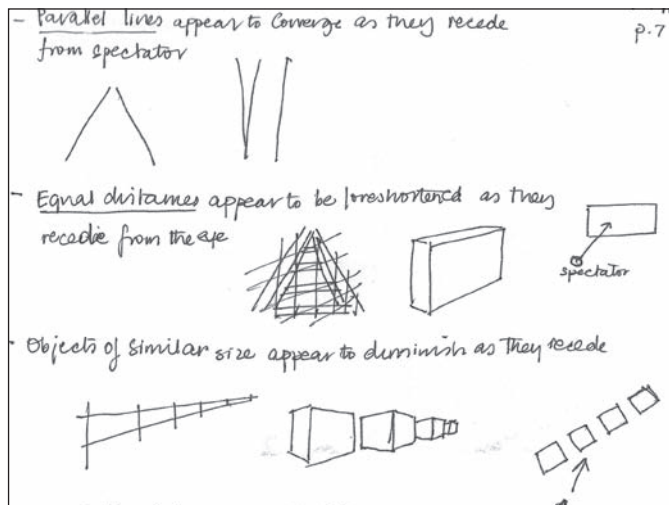 - Parallel lines appear to Converge as they recede
p.7
from spectator
- Equal distames appear to be foreshortened as they
recedie from the eye
spectator
· Objects of similar size appear to diminish as they recede